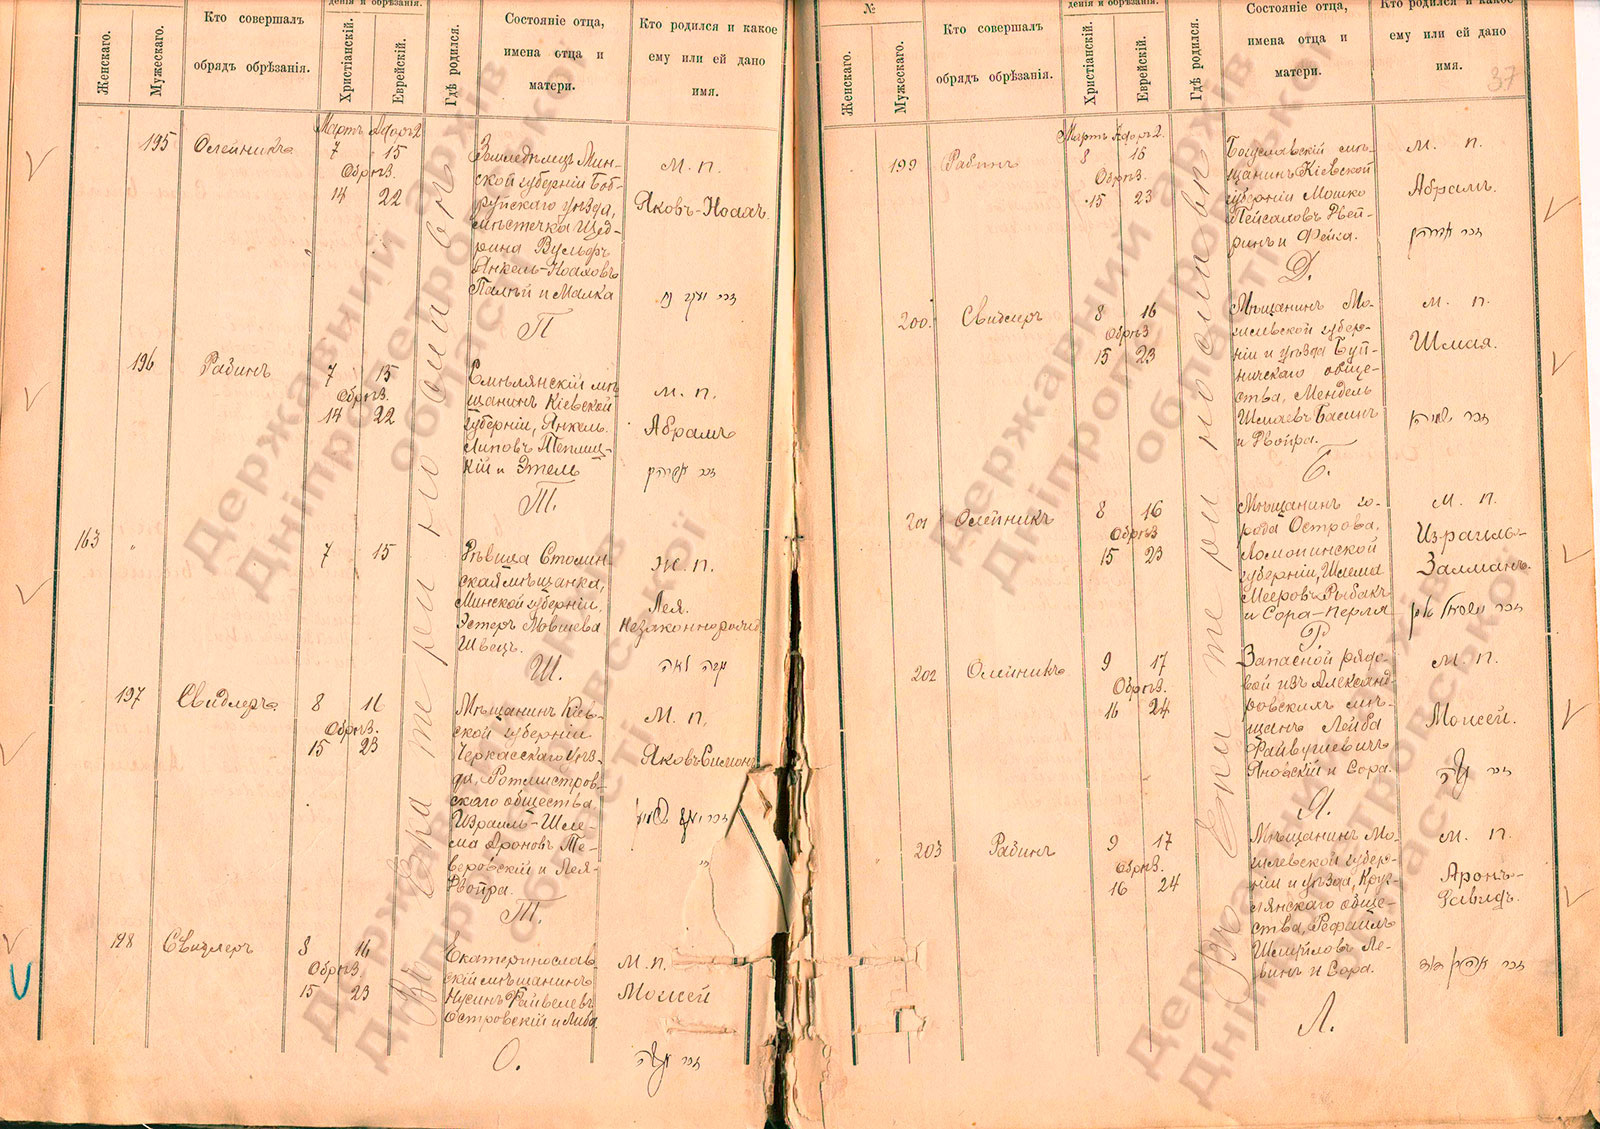 Женскаго.
Мужескаго.
Кто совершалъ
обрядъ обрѣзанія.
денія и обрѣзанія.
Христіанскій.
Еврейскій.
Гдѣ родился.
Состояніе отца,
имена отца и
матери.
Кто родился и какое
ему или ей дано
имя.
Мартъ Адаръ 2
195 Олейникъ 7 15
Обрѣз.
14 22
Земледѣлецъ Мин-
ской губерніи Боб-
руйскаго уѣзда,
мѣстечка Щед-
рина Вульфъ
Янкель-Ноаховъ
Палѣй и Малка
П
М. п.
Яковъ-Ноахъ.
196 Рабинъ 7 15
Обрѣз.
14 22
Смѣлянскій мѣ-
щанинъ Кіевской
губерніи, Янкель
Липовъ Теплиц-
кій и Этель
Т.
М. п.
Абрамъ
163 " 7 15
Дѣвица Столин-
ская мѣщанка,
Минской губерніи,
Эстеръ Мовшева
Швецъ.
Ш.
Ж. п.
Лея.
Незаконнорожд
197 Свидлеръ 8 16
Обрѣз.
15 23
Мѣщанинъ Кіев-
ской губерніи
Черкасскаго уѣз-
да, Ротмистров-
скаго общества
Израиль-Шле-
ма Ароновъ Те-
веровскій и Лея-
Двойра.
Т.
М. п.
Яковъ-Симонъ
198 Свидлеръ 8 16
Обрѣз.
15 23
Екатеринослав-
скій мѣщанинъ
Нусинъ Файвелевъ
Островскій и Либа
О.
М. п.
Моисей
Въ Екатеринославѣ
№
Женскаго.
Мужескаго.
Кто совершалъ
обрядъ обрѣзанія.
денія и обрѣзанія.
Христіанскій.
Еврейскій.
Гдѣ родился.
Состояніе отца,
имена отца и
матери.
Кто родился и какое
ему или ей дано
имя.
37
Мартъ Адаръ 2.
199 Рабинъ 8 16
Обрѣз.
15 23
Богуславскій мѣ-
щанинъ Кіевской
губерніи Мошко
Пейсаховъ Дей-
ринъ и Фейга.
Д.
М. п.
Абрамъ.
200. Свидлеръ 8 16
Обрѣз
15 23
Мѣщанинъ Мо-
гилевской губер-
ніи и уѣзда Буй-
ничскаго обще-
ства, Мендель
Шмаевъ Басинъ
и Двойра.
Б.
М. п.
Шмая.
201 Олейникъ 8 16
Обрѣз
15 23
Мѣщанинъ го-
рода Острова,
Ломжинской
губерніи, Шлема
Мееровъ Рыбакъ
и Сора-Перля
Р.
М. п.
Израиль-
Залманъ.
202 Олейникъ 9 17
Обрѣз.
16 24
Запасной рядо-
вой изъ Александ-
ровскихъ мѣ-
щанъ Лейба
Файвушевичъ
Яновскій и Сора.
Я.
М. п.
Моисей.
203 Рабинъ 9 17
Обрѣз.
16 24
Мѣщанинъ Мо-
гилевской губер-
ніи и уѣзда, Круг-
лянскаго обще-
ства, Рефаилъ
Шмуйловъ Ле-
винъ и Сора.
Л.
М. п.
Аронъ-
Давидъ.
Въ Екатеринославѣ
Державний архів
Дніпропетровської
області